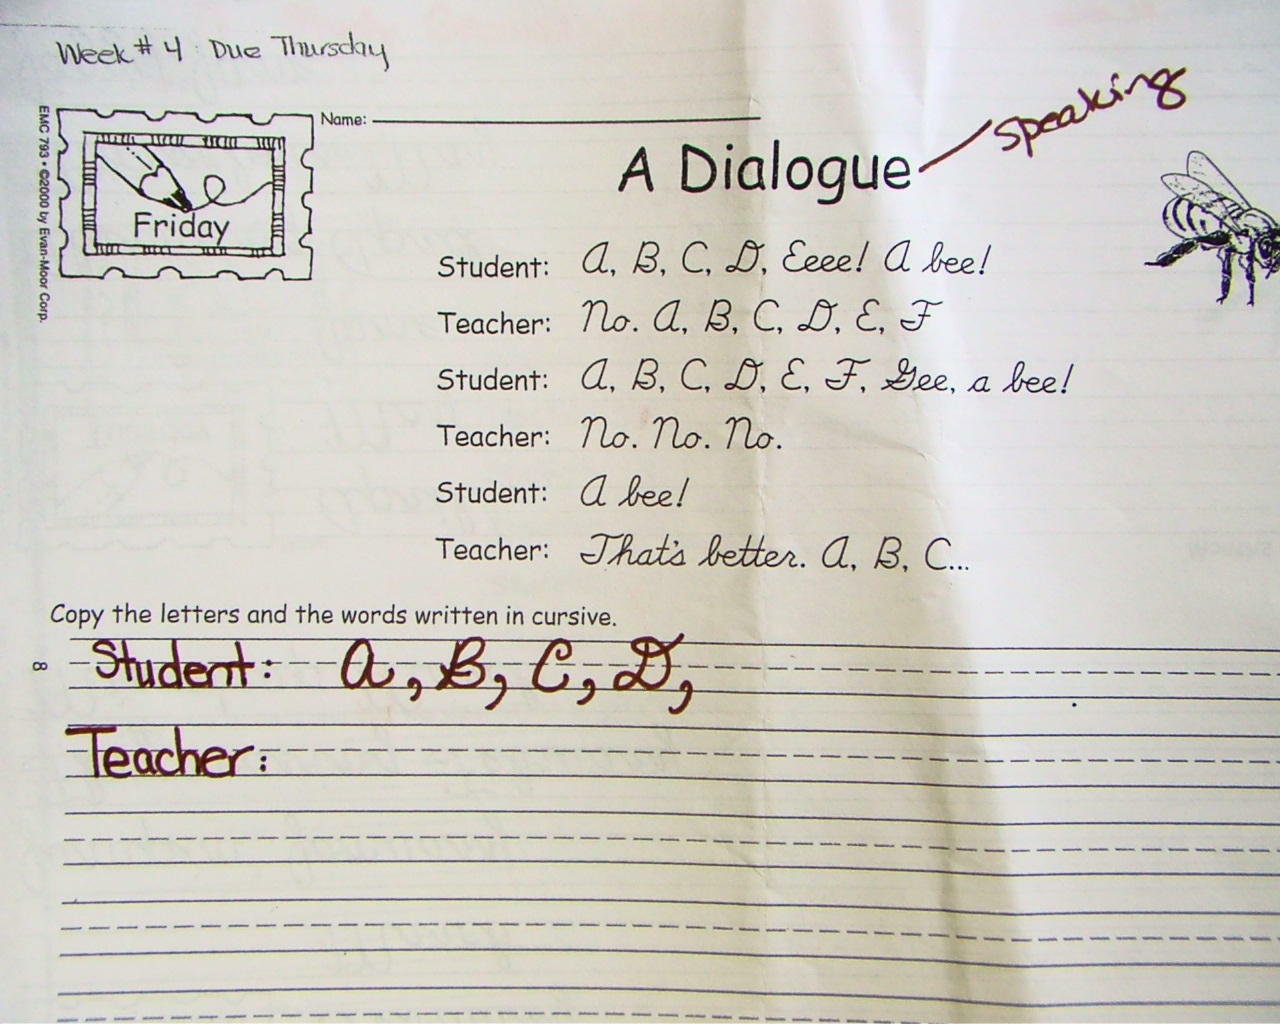 Week # 4 Due Thursday
EMC 793 • ©2000 by Evan-Moor Corp.
Friday
Name:
speaking
A Dialogue
Student: A, B, C, D, Eeee! A bee!
Teacher: No. A, B, C, D, E, F
Student: A, B, C, D, E, F, Gee, a bee!
Teacher: No. No. No.
Student: A bee!
Teacher: That's better. A, B, C...
Copy the letters and the words written in cursive.
8
Student: A, B, C, D,
Teacher: